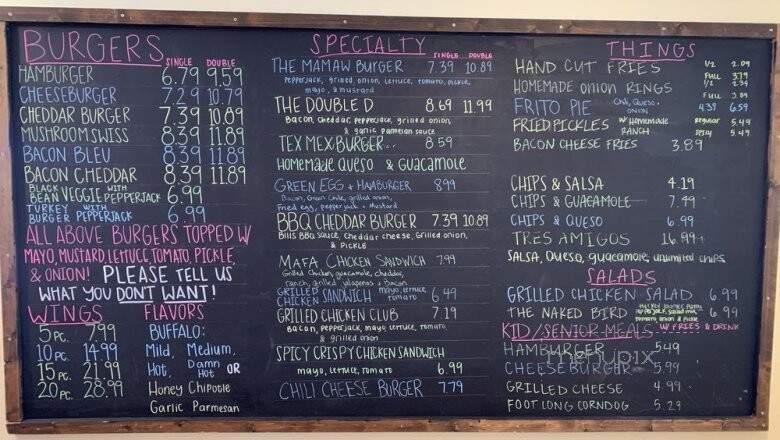 BURGERS
SINGLE DOUBLE
HAMBURGER 6.79 9.59
CHEESEBURGER 7.29 10.79
CHEDDAR BURGER 7.39 10.89
MUSHROOM SWISS 8.39 11.89
BACON BLEU 8.39 11.89
BACON CHEDDAR 8.39 11.89
BLACK BEAN VEGGIE WITH PEPPERJACK 6.99
TURKEY BURGER WITH PEPPERJACK 6.99
ALL ABOVE BURGERS TOPPED W/
MAYO, MUSTARD, LETTUCE, TOMATO, PICKLE,
& ONION! PLEASE TELL US
WHAT YOU DON'T WANT!
WINGS
5 PC. 7.99
10 PC. 14.99
15 PC. 21.99
20 PC. 28.99
FLAVORS
BUFFALO:
Mild, Medium,
Hot, Damn Hot OR
Honey Chipotle
Garlic Parmesan
SPECIALTY
SINGLE DOUBLE
THE MAMAW BURGER 7.39 10.89
Pepperjack, grilled onion, lettuce, tomato, pickle,
mayo, & mustard
THE DOUBLE D 8.69 11.99
Bacon, cheddar, pepperjack, grilled onion,
& garlic parmesan sauce
TEX MEX BURGER.. 8.59
HOMEMADE QUESO & GUACAMOLE
GREEN EGG & HAMBURGER 8.99
Bacon, Green Chile, grilled onion,
Fried egg, pepperjack & mustard
BBQ CHEDDAR BURGER 7.39 10.89
Bills BBQ sauce, Cheddar cheese, Grilled onion,
& PICKLE
MAFA CHICKEN SANDWICH 7.99
Grilled Chicken, guacamole, cheddar,
ranch, grilled jalapenos & Bacon
GRILLED CHICKEN SANDWICH mayo, lettuce, tomato 6.49
GRILLED CHICKEN CLUB 7.19
Bacon, Pepperjack, mayo, lettuce, tomato,
& grilled onion
SPICY CRISPY CHICKEN SANDWICH
mayo, lettuce, tomato 6.99
CHILI CHEESE BURGER 7.79
THINGS
HAND CUT FRIES 1/2 2.09
FULL 3.79
HOMEMADE ONION RINGS 1/2 2.34
FULL
FRITO PIE Chili, Queso, ONION 4.39 6.59
FRIED PICKLES W/ HOMEMADE RANCH Regular 5.49
SPICY 5.49
BACON CHEESE FRIES 3.89
CHIPS & SALSA 4.19
CHIPS & GUACAMOLE 7.49
CHIPS & QUESO 6.99
TRES AMIGOS 16.99
SALSA, QUESO, guacamole, unlimited chips
SALADS
GRILLED CHICKEN SALAD 6.99
THE NAKED BIRD 6.99
KID/SENIOR MEALS W/ FRIES & DRINK
HAMBURGER 5.49
CHEESEBURGER 5.99
GRILLED CHEESE 4.99
FOOT LONG CORNDOG 5.29
menupix